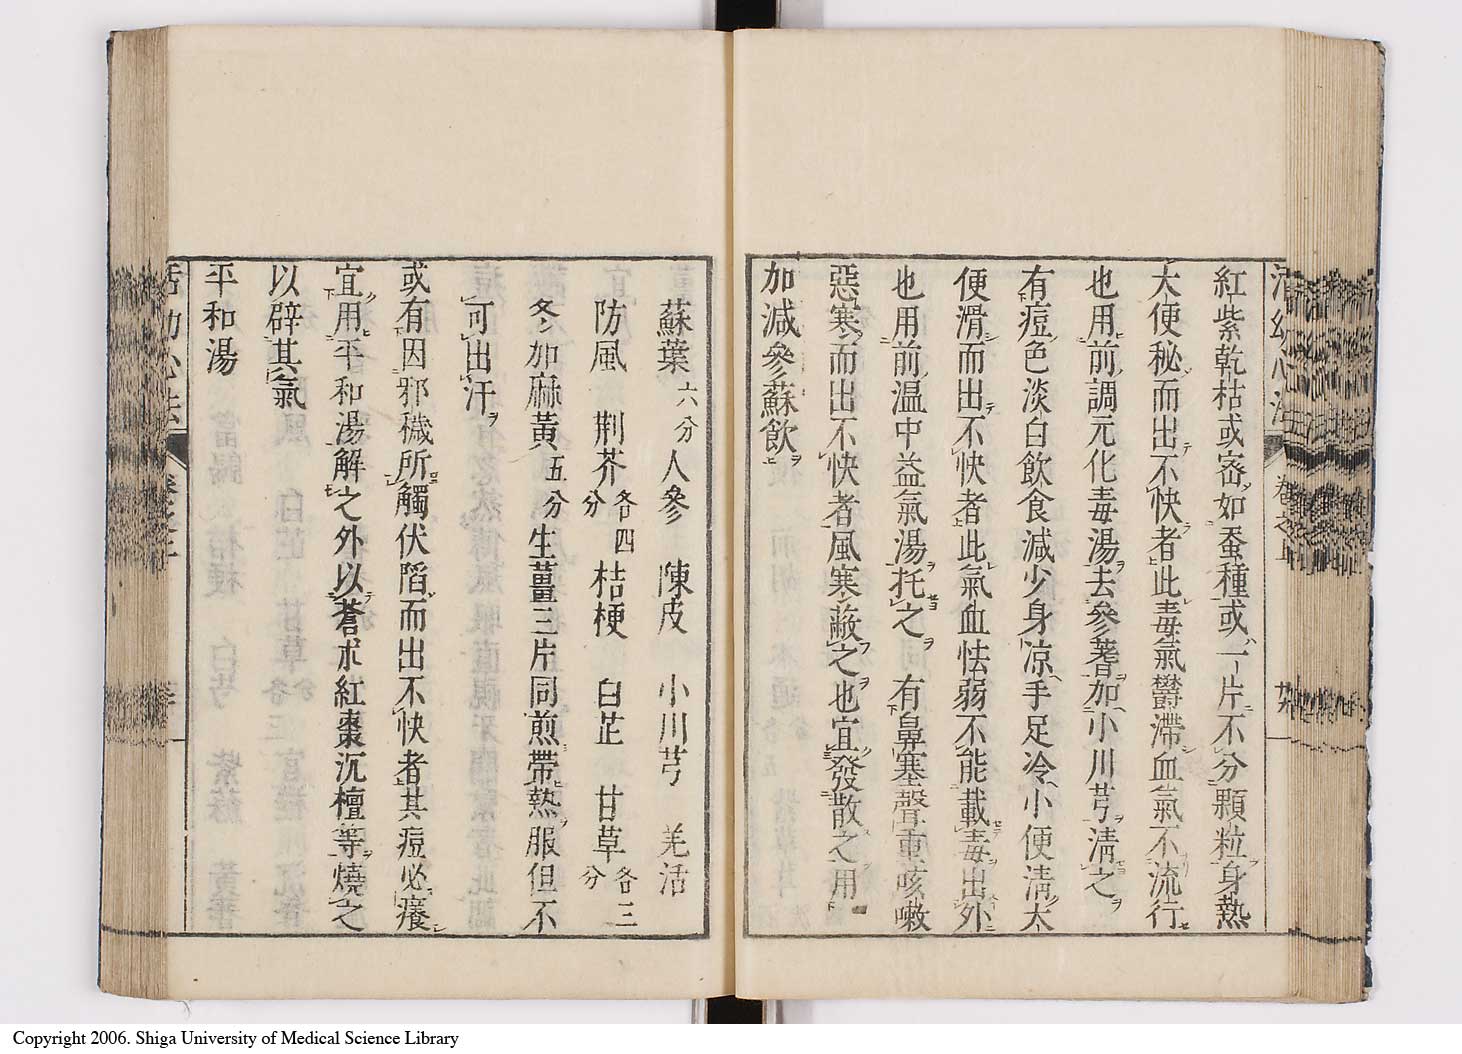 活幼心法 卷之上 廿九
紅紫乾枯或密如蚕種或一片不分顆粒身熱
大便秘而出不快者此毒氣欝滯血氣不流行
也用前調元化毒湯去參蓍加小川芎淸之
有痘色淡白飲食減少身凉手足冷小便淸大
便滑而出不快者此氣血怯弱不能載毒出外
也用前温中益氣湯托之 有鼻塞聲重咳嗽
惡寒而出不快者風寒蔽之也宜發散之用
加減參蘇飲
蘇葉六分 人參 陳皮 小川芎 羌活
防風 荆芥各四分 桔梗 白芷 甘草各三分
冬加麻黄五分 生薑三片同煎帶熱服但不
可出汗
或有因邪穢所觸伏陷而出不快者其痘必癢
宜用平和湯解之外以蒼朮紅棗沉檀等燒之
以辟其氣
平和湯
活幼心法
Copyright 2006. Shiga University of Medical Science Library